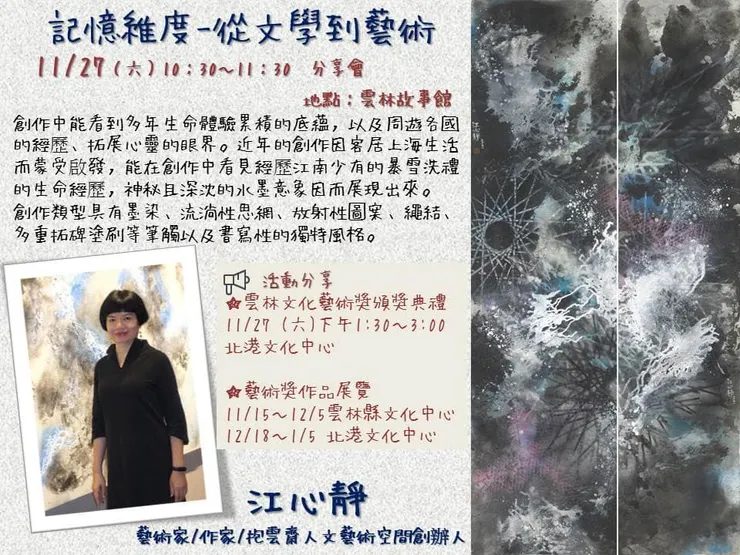 記憶維度-從文學到藝術
11/27(六)10:30~11:30 分享會
地點:雲林故事館
創作中能看到多年生命體驗累積的底蘊,以及周遊各國
的經歷、拓展心靈的眼界。近年的創作因客居上海生活
而蒙受啟發,能在創作中看見經歷江南少有的暴雪洗禮
的生命經歷,神秘且深沈的水墨意象因而展現出來。
創作類型具有墨染、流淌性思網、放射性圖案、繩結、
多重拓碑塗刷等筆觸以及書寫性的獨特風格。
活動分享
★雲林文化藝術獎頒獎典禮
11/27 (六)下午1:30~3:00
北港文化中心
★藝術獎作品展覽
11/15~12/5雲林縣文化中心
12/18~1/5 北港文化中心
江心靜
藝術家/作家/抱雲齋人文藝術空間創辦人